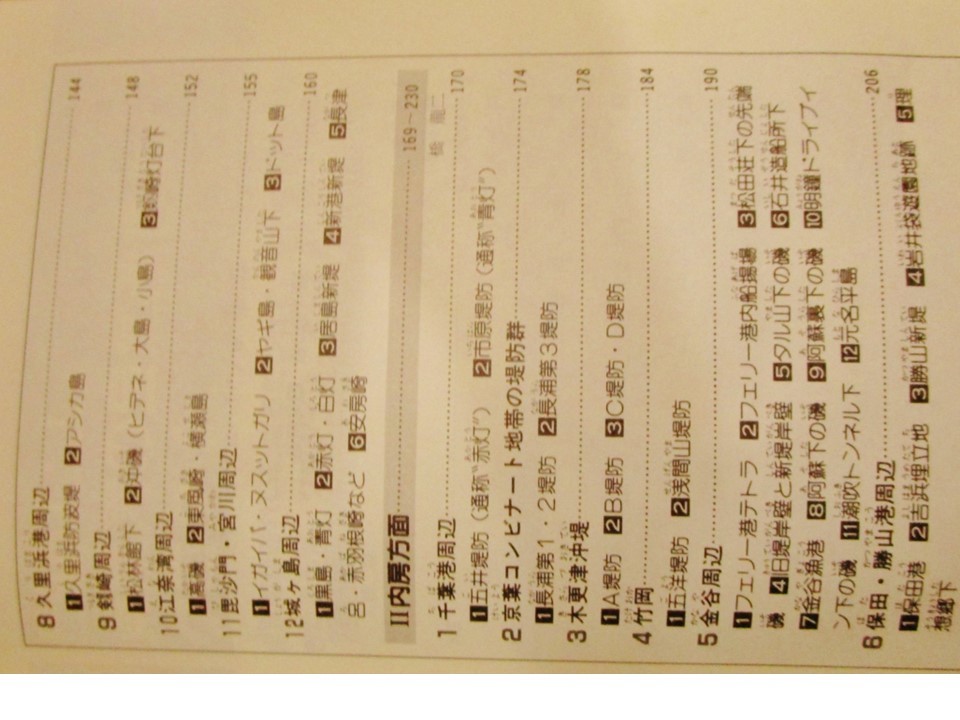 8 久里浜港周辺 144
1久里浜防波堤 2アシカ島
9 剣崎周辺 148
1松林廊下 2沖磯(ヒデネ・大島・小島) 3剣崎灯台下
10江奈湾周辺 152
1高磯 2東西崎・横瀬島
11毘沙門・宮川周辺 155
1イガイバ・ヌスットガリ 2ヤギ島・観音山下 3ドット島
12城ヶ島周辺 160
1黒島・青灯 2赤灯・白灯 3居島新堤 4新港新堤 5長津
呂・赤羽根崎など 6安房崎
II内房方面 169〜230
1 千葉港周辺 170
1五井堤防(通称“赤灯”) 2市原堤防(通称“青灯”)
2 京葉コンビナート地帯の堤防群 174
1長浦第1・2堤防 2長浦第3堤防
3 木更津沖堤 178
1A堤防 2B堤防 3C堤防・D堤防
4 竹岡 184
1五洋堤防 2浅間山堤防
5 金谷周辺 190
1フェリー港テトラ 2フェリー港内船揚場 3松田荘下の先端
磯 4旧堤岸壁と新堤岸壁 5タル山下の磯 6石井造船所下
7金谷漁港 8阿蘇下の磯 9阿蘇裏下の磯 10明鐘ドライブイ
ン下の磯 11潮吹トンネル下 12元名平島
6 保田・勝山港周辺 206
1保田港 2吉浜埋立地 3勝山新堤 4岩井袋遊園地跡 5理
想郷下